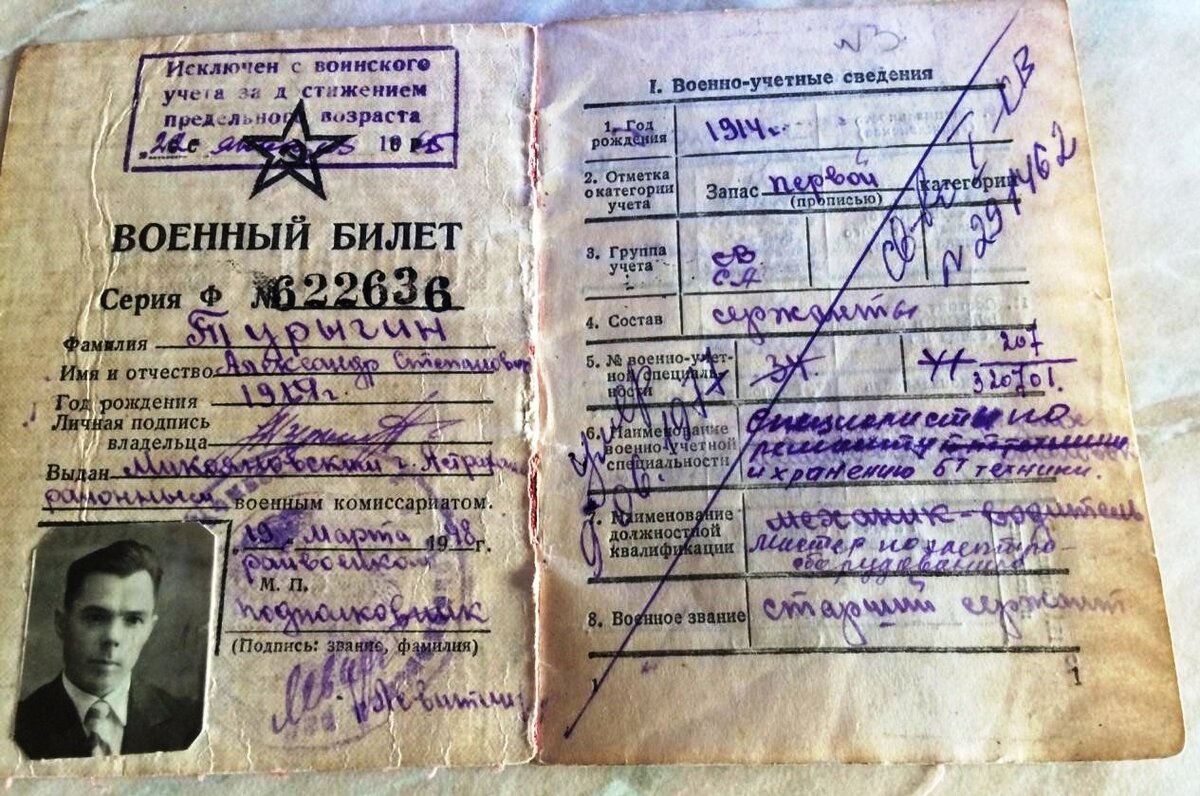 Исключен с воинского
учета за д стижением
предельного возраста
„22“ января 1965
ВОЕННЫЙ БИЛЕТ
Серия Ф № 622636
Фамилия Турыгин
Имя и отчество Александр Степанович
Год рождения 1914г.
Личная подпись
владельца
Выдан Микояновским г. Астрахани
районным военным комиссариатом.
„19“ Марта 1948г.
райвоенком
М. П.
подполковник
(Подпись: звание, фамилия)
Левитин
№3.
I. Военно-учетные сведения
1. Год
рождения
1914г.
2. Отметка
о категории
учета
Запас первой категории
(прописью)
3. Группа
учета
СА
4. Состав
сержанты
5. № военно-учет-
ной специаль-
ности
31
207
320701.
6. Наименование
военно-учетной
специальности
Специалисты по
ремонту
и хранению БТ техники.
7. Наименование
должностной
квалификации
механик-водитель
Мастер по электро-
оборудованию
8. Военное звание
старший сержант
св-во
№ 2914462
1